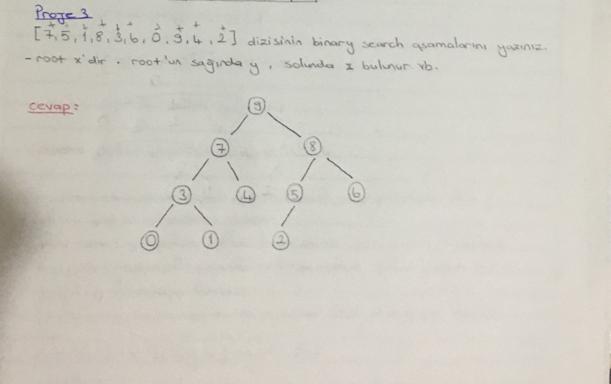 Proje 3
[7, 5, 1, 8, 3, 6, 0, 9, 4, 2] dizisinin binary search aşamalarını yazınız.
-root x'dir. root'un sağında y, solunda z bulunur vb.
cevap:
9
7 8
3 4 5 6
0 1 2